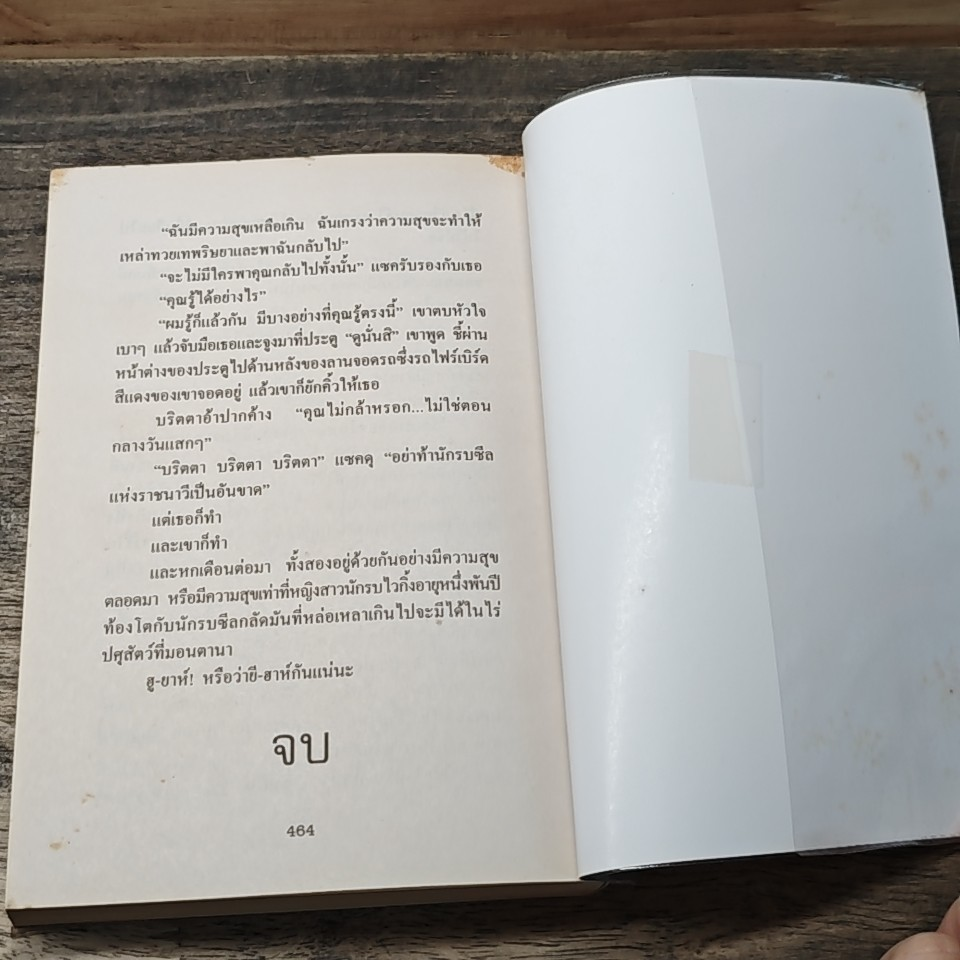 “ฉันมีความสุขเหลือเกิน ฉันเกรงว่าความสุขจะทำให้
เหล่าทวยเทพริษยาและพาฉันกลับไป”
“จะไม่มีใครพาคุณกลับไปทั้งนั้น” แซครับรองกับเธอ
“คุณรู้ได้อย่างไร”
“ผมรู้ก็แล้วกัน มีบางอย่างที่คุณรู้ตรงนี้” เขาตบหัวใจ
เบาๆ แล้วจับมือเธอและจูงมาที่ประตู “ดูนั่นสิ” เขาพูด ชี้ผ่าน
หน้าต่างของประตูไปด้านหลังของลานจอดรถซึ่งรถไฟร์เบิร์ด
สีแดงของเขาจอดอยู่ แล้วเขาก็ยักคิ้วให้เธอ
บริตตาอ้าปากค้าง “คุณไม่กล้าหรอก...ไม่ใช่ตอน
กลางวันแสกๆ”
“บริตตา บริตตา บริตตา” แซคดุ “อย่าท้านักรบซีล
แห่งราชนาวีเป็นอันขาด”
แต่เธอก็ทำ
และเขาก็ทำ
และหกเดือนต่อมา ทั้งสองอยู่ด้วยกันอย่างมีความสุข
ตลอดมา หรือมีความสุขเท่าที่หญิงสาวนักรบไวกิ้งอายุหนึ่งพันปี
ท้องโตกับนักรบซีลกลัดมันที่หล่อเหลาเกินไปจะมีได้ในไร่
ปศุสัตว์ที่มอนตานา
ฮู-ยาห์! หรือว่ายี-ฮาห์กันแน่นะ
จบ
464